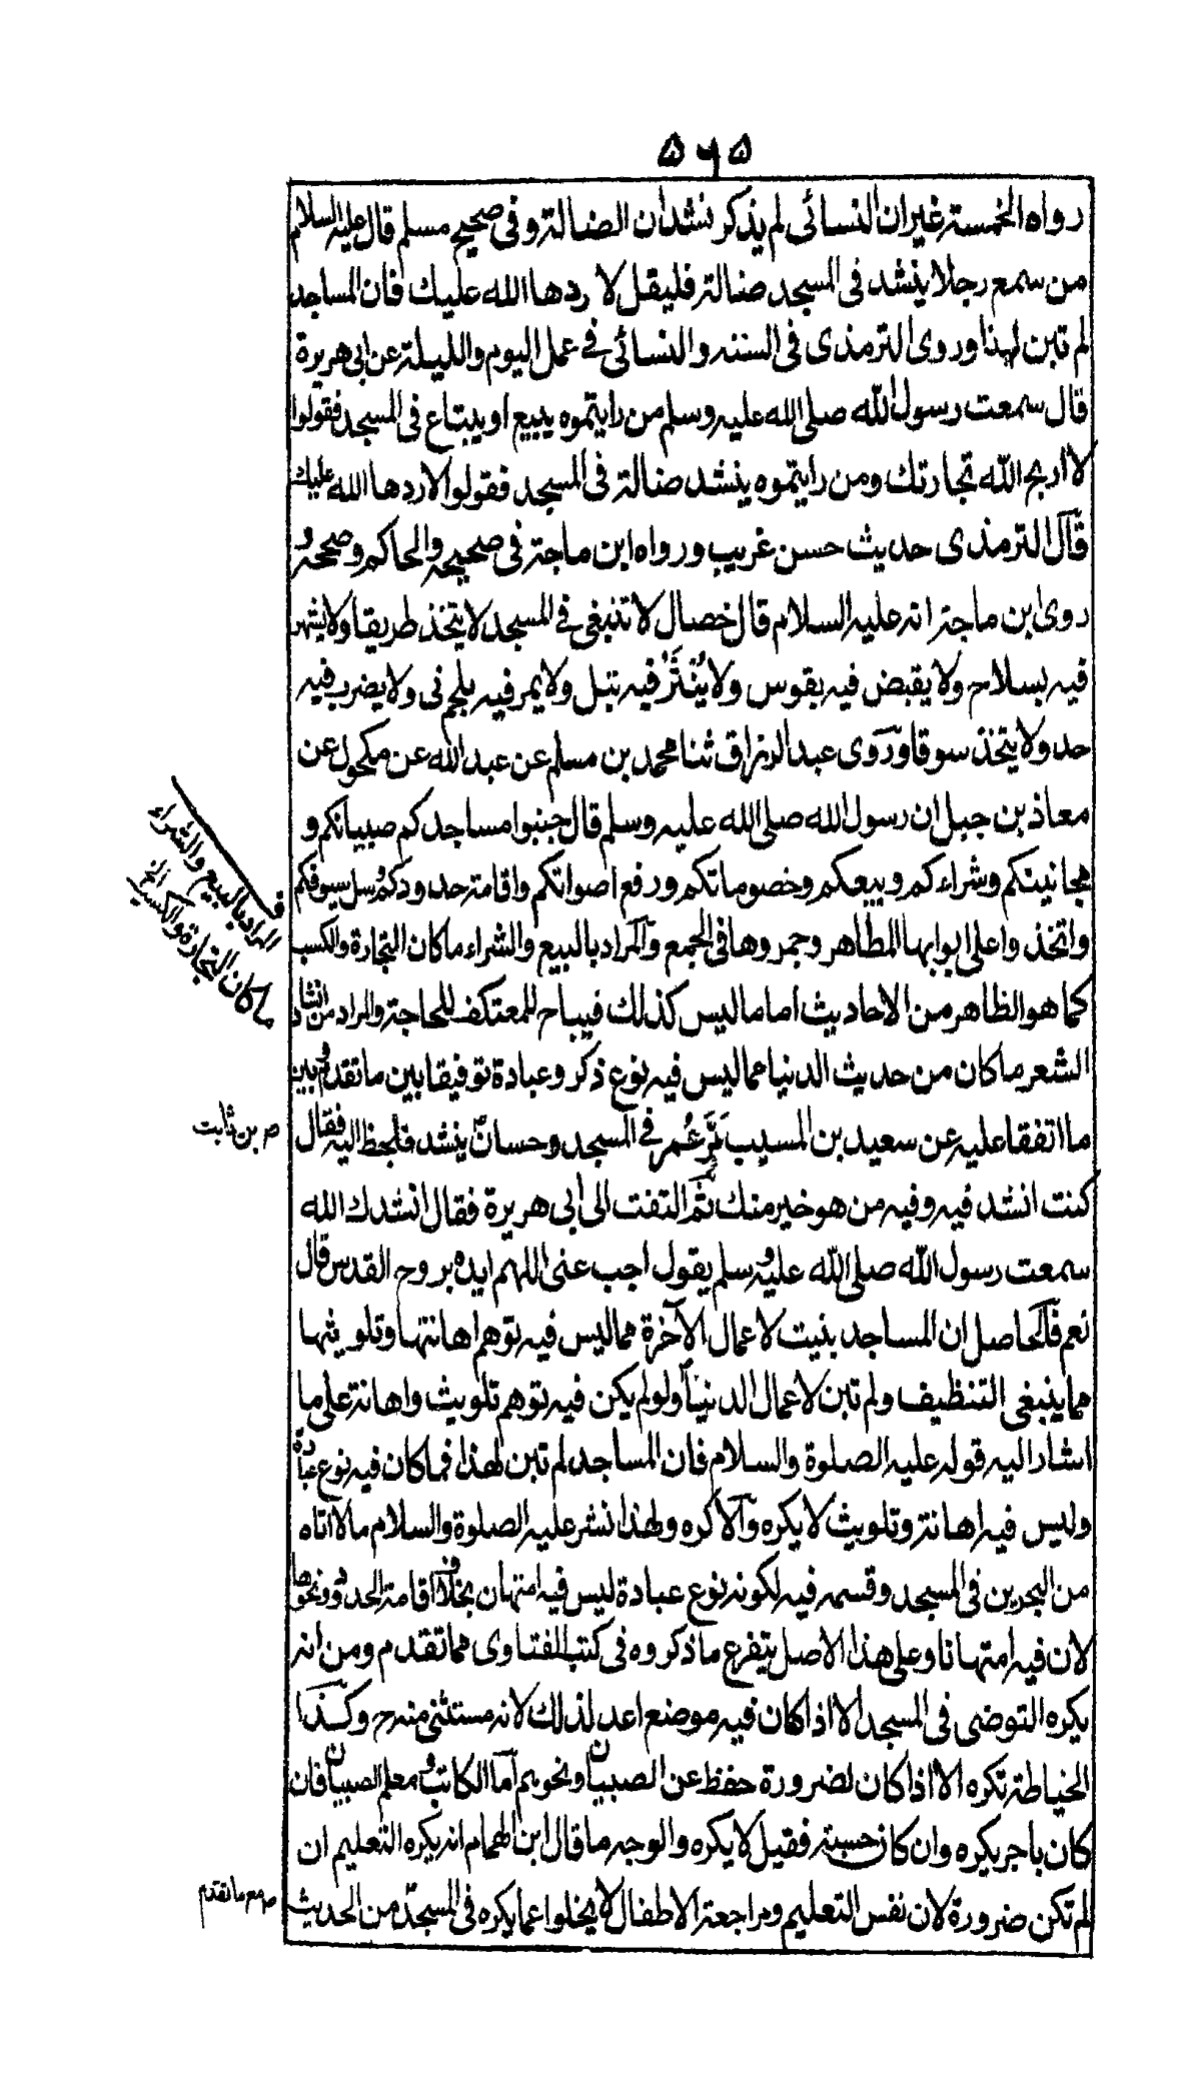 ۵۶۵
رواه الخمسة غير ان النسائى لم يذكر نشدان الضالة و فى صحيح مسلم قال عليه السلام
من سمع رجلا ينشد فى المسجد ضالة فليقل لا ردها الله عليك فان المساجد
لم تبن لهذا و روى الترمذى فى السننه و النسائى فى عمل اليوم والليلة عن ابى هريرة
قال سمعت رسول الله صلى الله عليه وسلم من رايتموه يبيع او يبتاع فى المسجد فقولوا
لا اربح الله تجارتك ومن رايتموه ينشد ضالة فى المسجد فقولوا لا ردها الله عليك
قال الترمذى حديث حسن غريب ورواه ابن ماجة فى صحيحه والحاكم وصححه و
روى ابن ماجة انه عليه السلام قال خصال لا تنبغى فى المسجد لا يتخذ طريقا ولا يشهر
فيه بسلاح ولا يقبض فيه بقوس ولا يُنْثَرُ فيه نبل ولا يمر فيه بلحم نى ولا يضرب فيه
حد ولا يتخذ سوقا و روى عبد الرزاق ثنا محمد بن مسلم عن عبد الله عن مكحول عن
معاذ بن جبل ان رسول الله صلى الله عليه وسلم قال جنبوا مساجدكم صبيانكم و
مجانينكم وشراءكم وبيعكم وخصوماتكم ورفع اصواتكم واقامة حدودكم وسل سيوفكم
واتخذوا على ابوابها المطاهر وجمروها فى الجمع والمراد بالبيع والشراء ما كان التجارة والكسب
كما هو الظاهر من الاحاديث اما ما ليس كذلك فيباح للمعتكف للحاجة والمراد من انشاد
الشعر ما كان من حديث الدنيا مما ليس فيه نوع ذكر وعبادة توفيقا بين ما تقدم وبين
ما اتفقا عليه عن سعيد بن المسيب مَرَّ عُمر فى المسجد وحسان ينشد فلحظ اليه فقال
كنت انشد فيه وفيه من هو خير منك ثم التفت الى ابى هريرة فقال انشدك الله
سمعت رسول الله صلى الله عليه وسلم يقول اجب عنى اللهم ايده بروح القدس قال
نعم فالحاصل ان المساجد بنيت لاعمال الآخرة مما ليس فيه توهم اهانتها وتلويثها
مما ينبغى التنظيف ولم تبن لاعمال الدنيا ولو لم يكن فيه توهم تلويث واهانة على ما
اشار اليه قوله عليه الصلوة والسلام فان المساجد لم تبن لهذا فما كان فيه نوع عبادة
وليس فيه اهانة وتلويث لا يكره والا كره ولهذا نثر عليه الصلوة والسلام مالا اتاه
من البحرين فى المسجد وقسمه فيه لكونه نوع عبادة ليس فيه امتهان بخلاف اقامة الحدود ونحوها
لان فيه امتهانا وعلى هذا الاصل يتفرع ما ذكروه فى كتب الفتاوى مما تقدم ومن انه
يكره التوضى فى المسجد الا اذا كان فيه موضع اعد لذلك لانه مستثنى منه ح وكذا
الخياطة تكره الا اذا كان لضرورة حفظ عن الصبيان ونحوهم اما الكاتب ومعلم الصبيان فان
كان باجر يكره وان كان حسبة فقيل لا يكره والوجه ما قال ابن الهمام انه يكره التعليم ان
لم تكن ضرورة لان نفس التعليم ومراجعة الاطفال لا يخلوا عما يكره فى المسجد من الحديث
ف
المراد بالبيع والشراء
ما كان التجارة والكسب الخ
ص بن ثابت
ص مع ما تقدم